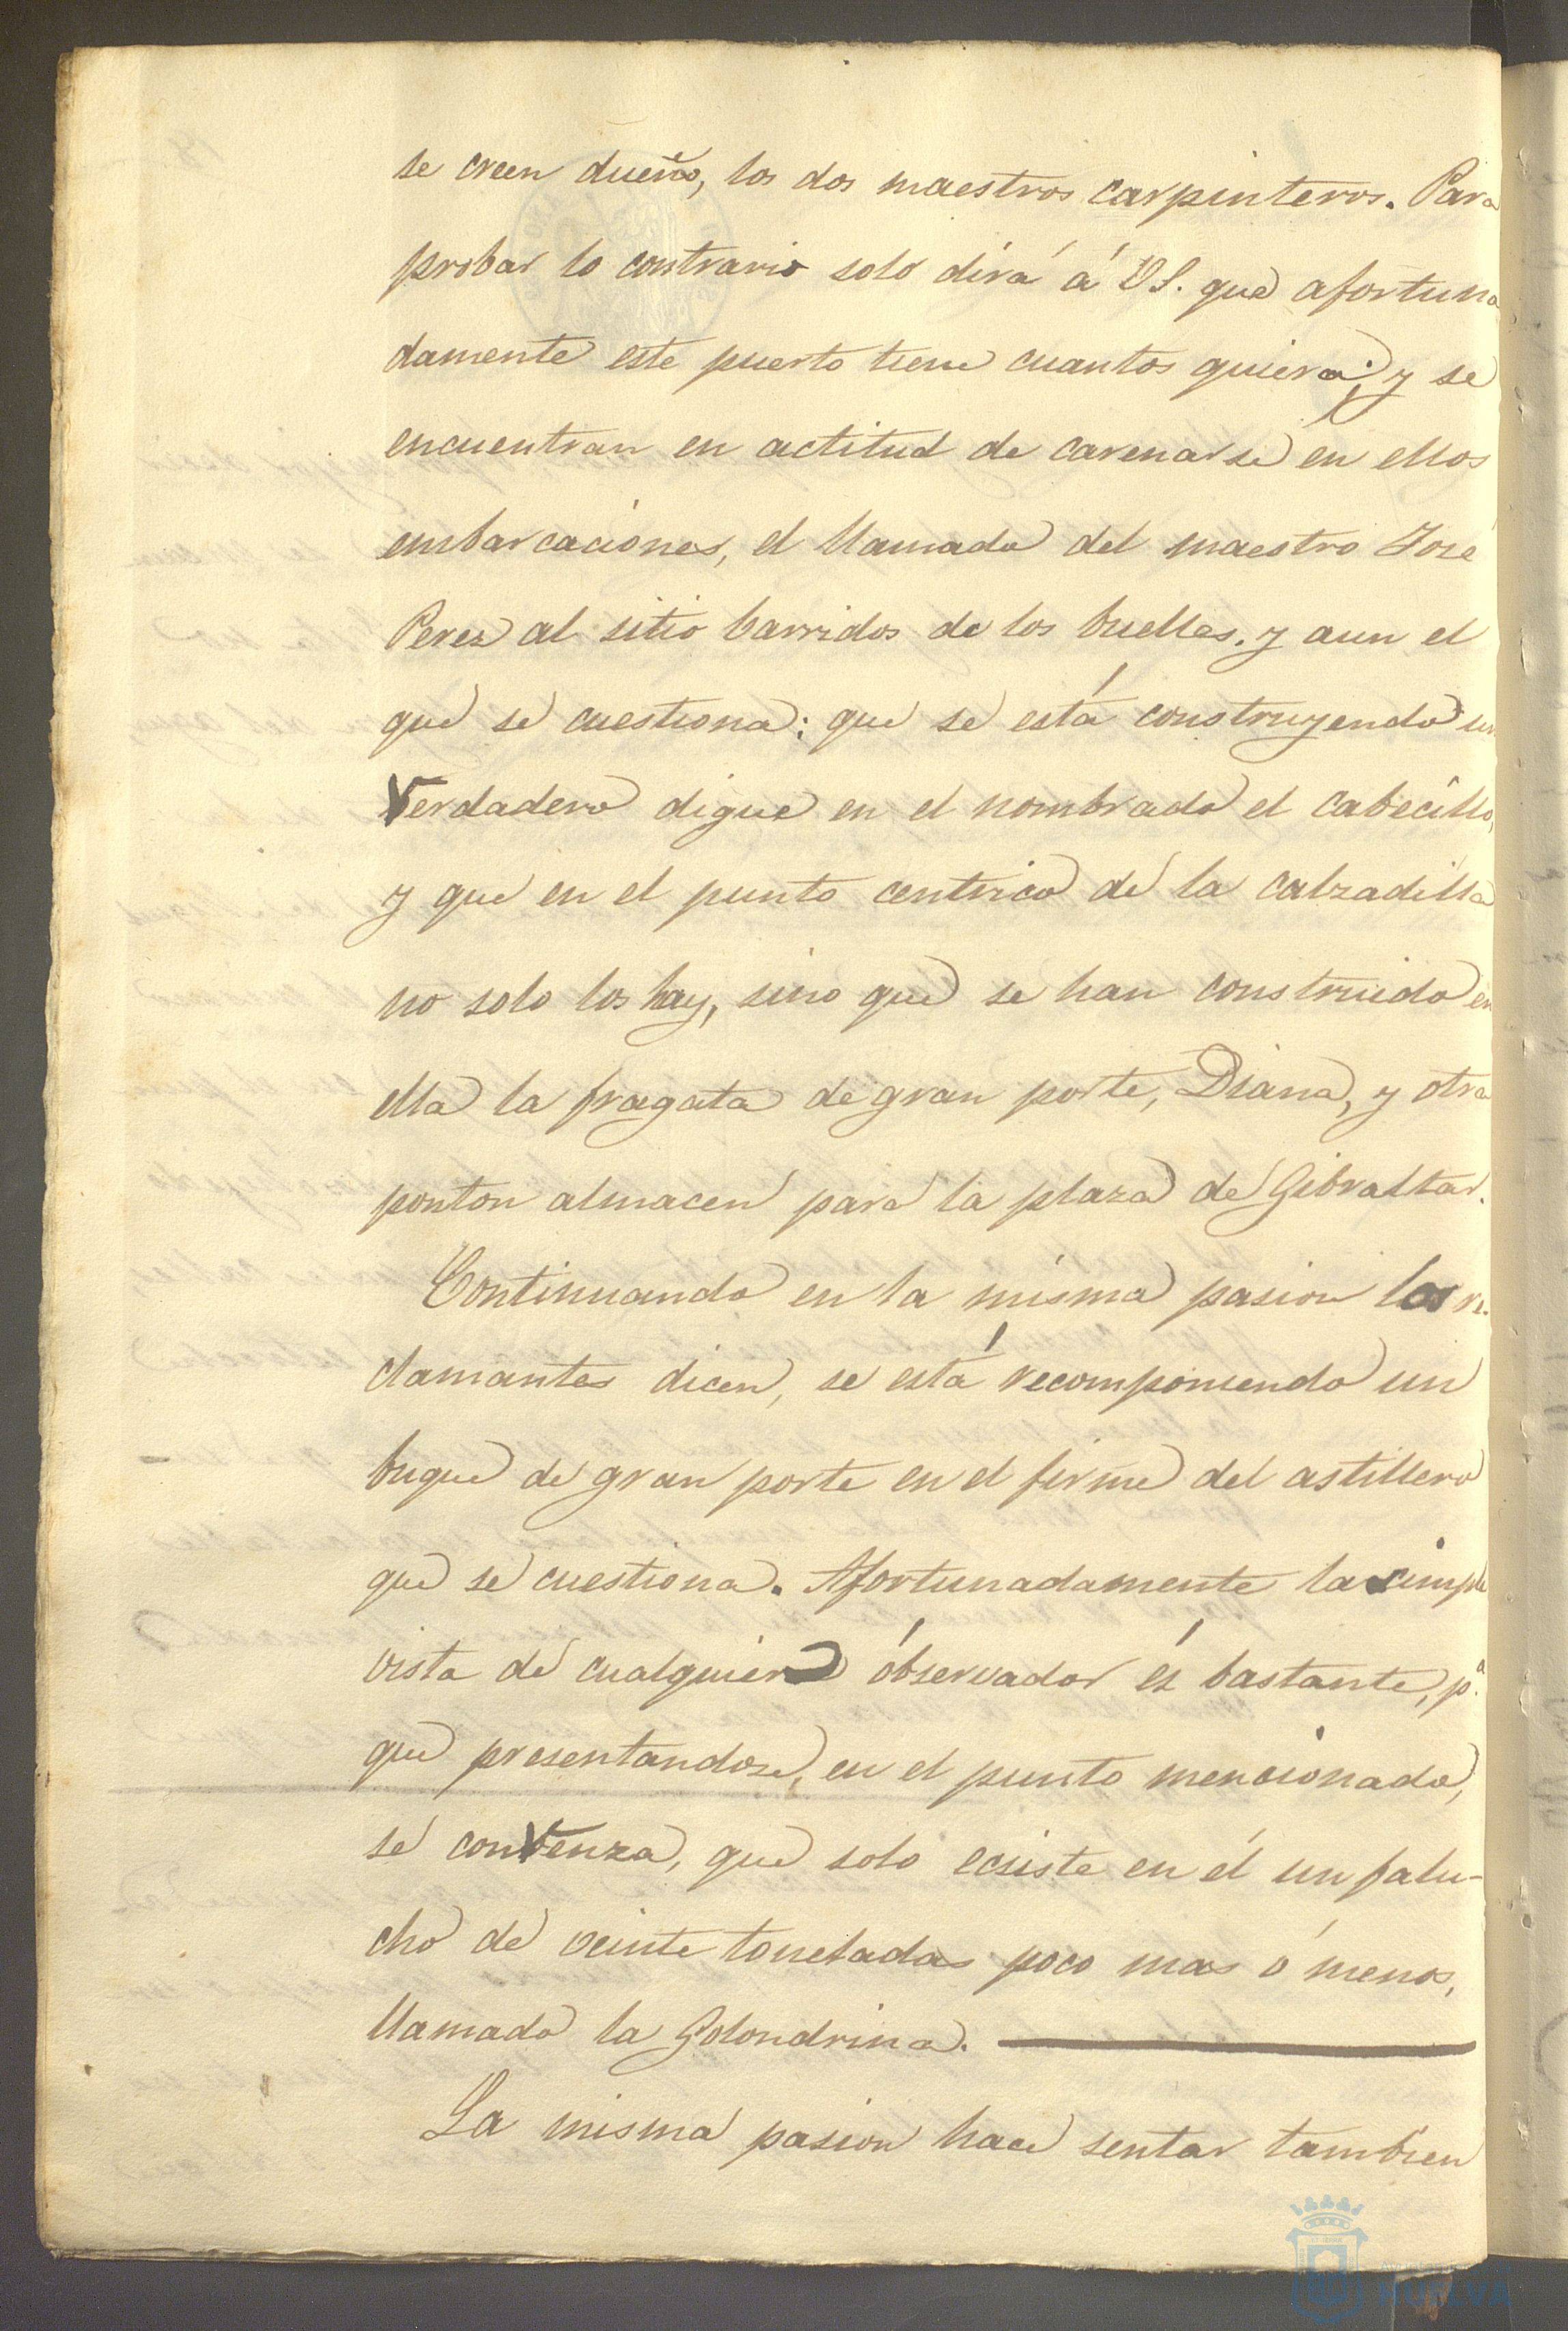 se creen dueño, los dos maestros carpinteros. Para
probar lo contrario solo dirá á VS. que afortuna
damente este puerto tiene cuantos quiera; y se
encuentran en actitud de carenarse en ellos
embarcaciones, el llamado del maestro José
Perez al sitio barridos de los buelles. y aun el
que se cuestiona: que se está construyendo un
Verdadero digue en el nombrado el cabecillo,
y que en el punto centrico de la calzadilla
no solo los hay, sino que se han construido en
ella la fragata de gran porte, Diana, y otra
ponton almacen para la plaza de Gibraltar.
Continuando en la misma pasion los re-
clamantes dicen, se está recomponiendo un
buque de gran porte en el firme del astillero
que se cuestiona. Afortunadamente la simple
vista de cualquier óbservador és bastante, p.ª
que presentandose, en el punto mencionado,
se conVenza, que solo ecsiste en él un falu-
cho de veinte toneladas poco mas ó menos,
llamado la Golondrina.
La misma pasion hace sentar tambien
HUELVA